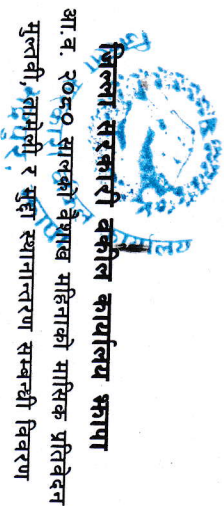 जिल्ला सरकारी वकील कार्यालय झापा
आ.व. २०८० सालको वैशाख महिनाको मासिक प्रतिवेदन
मुल्तवी, तामेली र मुद्दा स्थानान्तरण सम्बन्धी विवरण